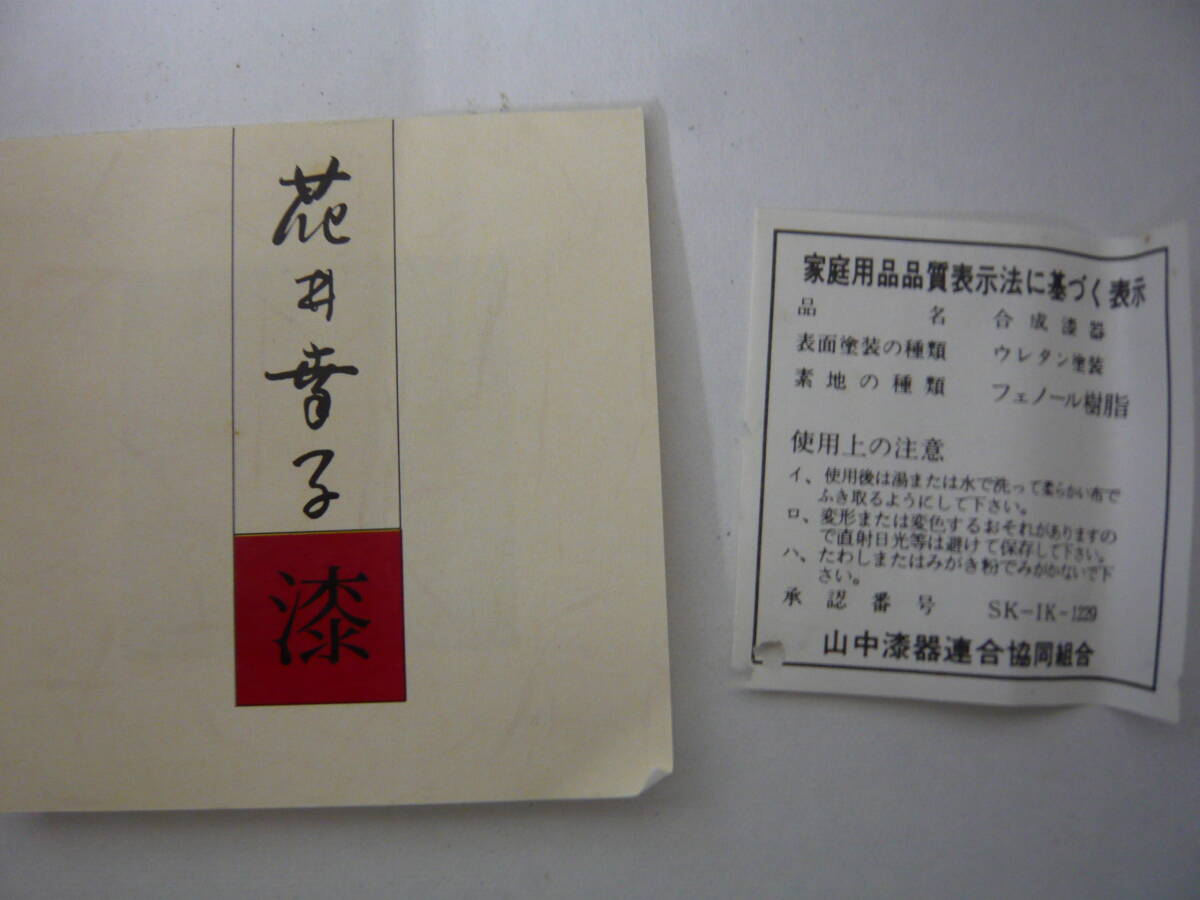 花井幸子
漆
家庭用品品質表示法に基づく表示
品名 合成漆器
表面塗装の種類 ウレタン塗装
素地の種類 フェノール樹脂
使用上の注意
イ、使用後は湯または水で洗って柔らかい布で
ふき取るようにして下さい。
ロ、変形または変色するおそれがありますの
で直射日光等は避けて保存して下さい。
ハ、たわしまたはみがき粉でみがかないで下
さい。
承認番号 SK-IK-1229
山中漆器連合協同組合